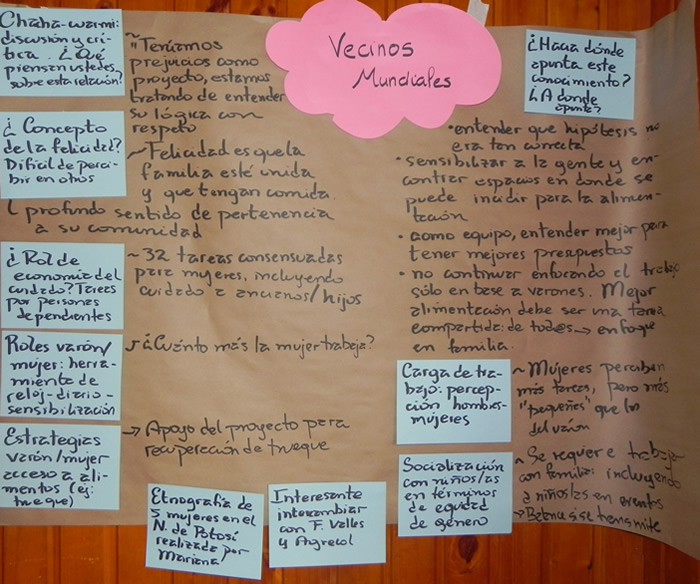 Vecinos
Mundiales
Chaha-warmi:
discusión y crí-
tica. ¿Qué
piensan ustedes
sobre esta relación?
~"Teníamos
prejuicios como
proyecto, estamos
tratando de entender
su lógica con
respeto
¿Concepto
de la felicidad?
Difícil de perci-
bir en otros
~Felicidad es que la
familia esté unida
y que tengan comida.
profundo sentido de pertenencia
a su comunidad
¿Rol de
economía del
cuidado? Tareas
por personas
dependientes
~ 32 tareas consensuadas
para mujeres, incluyendo
cuidado a ancianos/hijos
Roles varón/
mujer: herra-
miento de
reloj-diario-
sensibilización
¿Cuánto más la mujer trabaja?
Estrategias
varón/mujer
acceso a ali-
mentos (ej:
trueque)
→ Apoyo del proyecto para
recuperación de trueque
Etnografía de
5 mujeres en el
N. de Potosí
realizada por
Mariana!
Interesante
intercambiar
con F. Valles
y Agrecol
¿Hacia dónde
apunta este
conocimiento?
¿A donde
apunte?
• entender que hipótesis no
era tan correcta
• sensibilizar a la gente y en-
contrar espacios en donde se
puede incidir para la alimen-
tación
• como equipo, entender mejor para
tener mejores presupuestos
• no continuar enfocando el trabajo
sólo en base a varones. Mejor
alimentación debe ser una tarea
compartida: de todos → enfoque
en familia.
Carga de tra-
bajo: percep-
ción hombres-
mujeres
~ Mujeres perciben
más tareas, pero más
"pequeñas" que los
del varón
Socialización
con niños/as
en términos
de equidad
de género
~ Se requiere trabajo
con familia: incluyendo
a niños/as en eventos
→ si se transmite